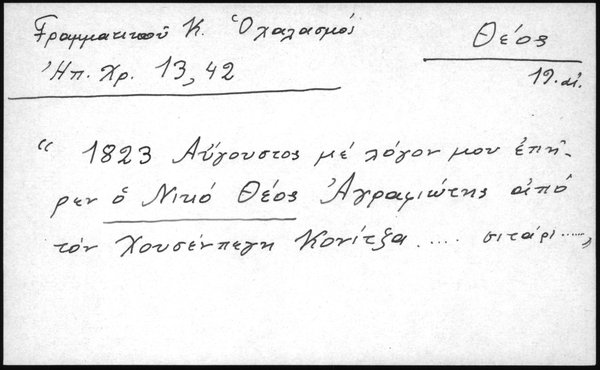 Γραμματικοῦ Κ. Ὁ χαλασμός
Θέος
Ἠπ. Χρ. 13, 42
19. αἰ.
“ 1823 Αὔγουστος μέ λόγον μου ἐπῆ-
ρεν ὁ Νικό Θέος Ἀγραφιώτης ἀπό
τόν Χουσένπεγη Κονίτζα ..... σιτάρι ......„